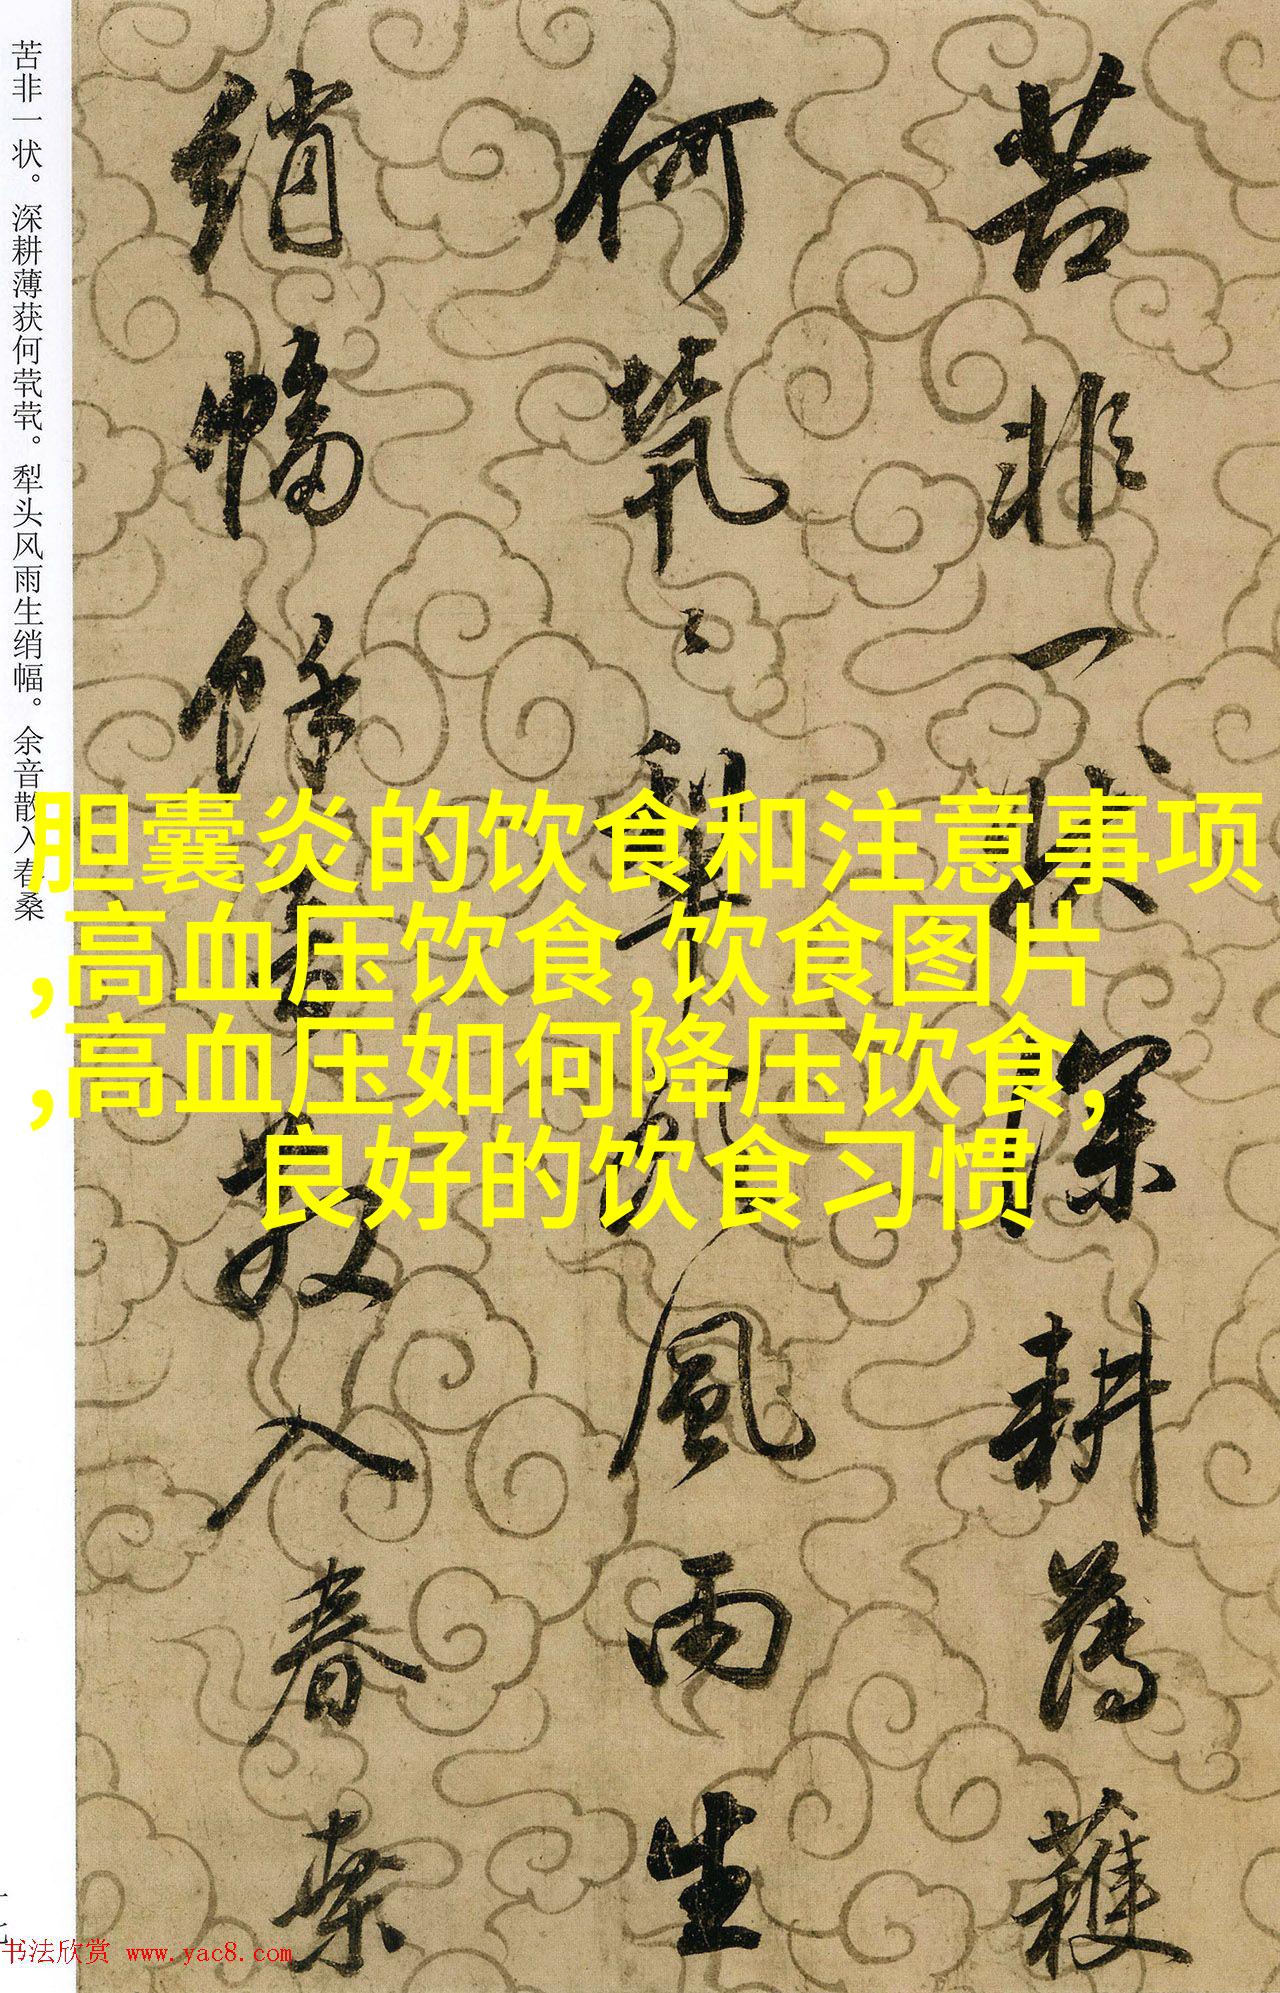 苦非一状。深耕薄获何茕茕。犁头风雨生绡幅。余音散入春桑
苦非一状深耕薄穫
何茕〻犁头風雨生
绡幅馀音散入春桑
胆囊炎的饮食和注意事项
,高血压饮食,饮食图片
,高血压如何降压饮食,
良好的饮食习惯
书法欣赏 www.yac8.com